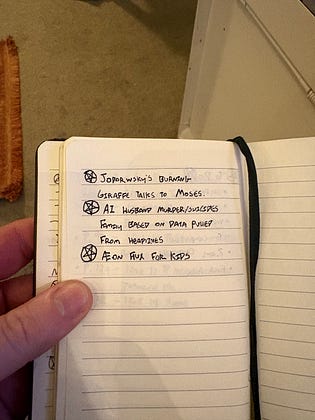 Jodorwsky's Burning
Giraffe Talks to Moses.
AI Husband Murder/Suicides
Family Based on Data Pulled
From Headlines
Æon Flux For Kids